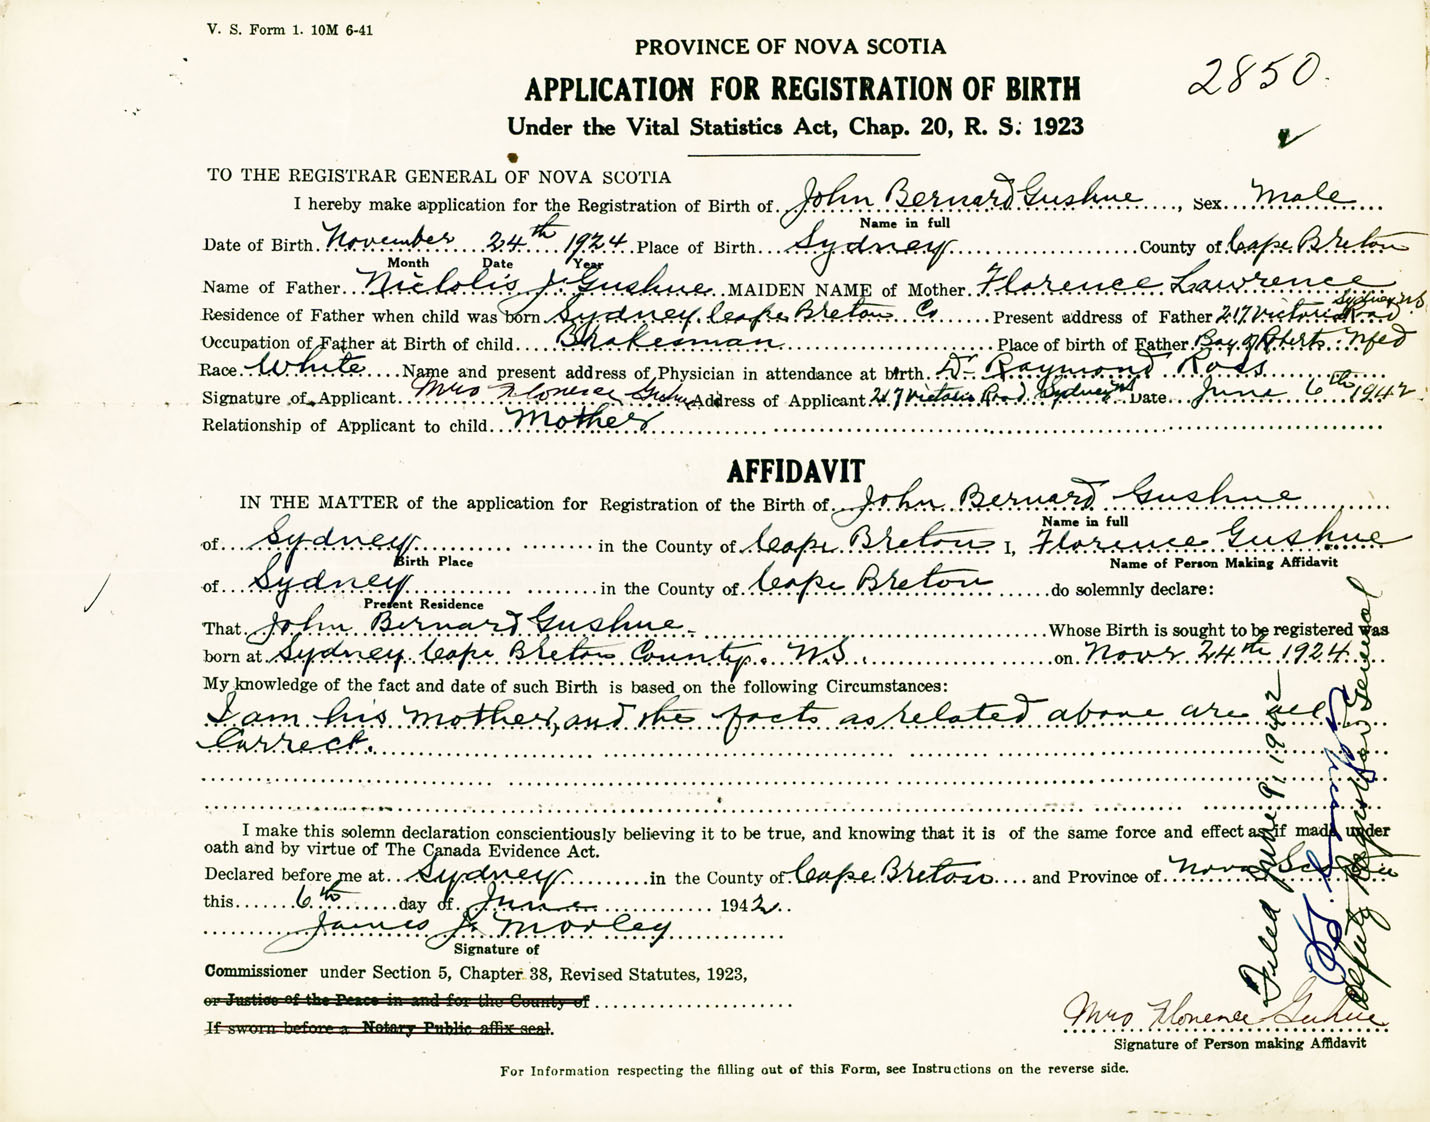 V. S. Form 1. 10M 6-41
PROVINCE OF NOVA SCOTIA
2850.
APPLICATION FOR REGISTRATION OF BIRTH
Under the Vital Statistics Act, Chap. 20, R. S. 1923
TO THE REGISTRAR GENERAL OF NOVA SCOTIA
I hereby make application for the Registration of Birth of John Bernard Gushue, Sex Male
Name in full
Date of Birth November 24th 1924 Place of Birth Sydney County of Cape Breton
Month Date Year
Name of Father Nicholis J. Gushue MAIDEN NAME of Mother Florence Lawrence
Residence of Father when child was born Sydney Cape Breton Co Present address of Father 217 Victoria Road Sydney N.S.
Occupation of Father at Birth of child Brakesman Place of birth of Father Bay of Roberts Nfed
Race White Name and present address of Physician in attendance at birth Dr Raymond Ross
Signature of Applicant Mrs Florence Gushue Address of Applicant 217 Victoria Road Sydney NS Date June 6th 1942
Relationship of Applicant to child Mother
AFFIDAVIT
IN THE MATTER of the application for Registration of the Birth of John Bernard Gushue
Name in full
of Sydney in the County of Cape Breton I, Florence Gushue
Birth Place Name of Person Making Affidavit
of Sydney in the County of Cape Breton do solemnly declare:
Present Residence
That John Bernard Gushue Whose Birth is sought to be registered was
born at Sydney Cape Breton County. N.S. on Novr 24th 1924
My knowledge of the fact and date of such Birth is based on the following Circumstances:
I am his mother, and the facts as related above are all
Correct.
I make this solemn declaration conscientiously believing it to be true, and knowing that it is of the same force and effect as if made under
oath and by virtue of The Canada Evidence Act.
Declared before me at Sydney in the County of Cape Breton and Province of Nova Scotia
this 6th day of June 1942
James J. Morley
Signature of
Commissioner under Section 5, Chapter 38, Revised Statutes, 1923,
or Justice of the Peace in and for the County of
If sworn before a Notary Public affix seal.
Mrs Florence Gushue
Signature of Person making Affidavit
For Information respecting the filling out of this Form, see Instructions on the reverse side.
Filed June 9, 1942
Deputy Registrar General